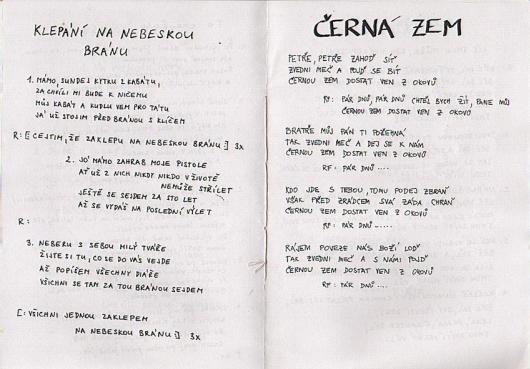 KLEPÁNÍ NA NEBESKOU
BRÁNU
1. MÁMO, SUNDEJ KYTKU Z KABÁTU,
ZA CHVÍLI MI BUDE K NIČEMU
MŮJ KABÁT A KUDLU VEM PRO TÁTU
JÁ UŽ STOJÍM PŘED BRÁNOU S KLÍČEM
R: [: CEJTIM, ŽE ZAKLEPU NA NEBESKOU BRÁNU :] 3x
2. JÓ MÁMO ZAHRAB MOJE PISTOLE
AŤ UŽ Z NICH NIKDY NIKDO V ŽIVOTĚ
NEMŮŽE STŘÍLET
JEŠTĚ SE SEJDEM ZA STO LET
AŽ SE VYDÁŠ NA POSLEDNÍ VÝLET
R:
3. NEBERU S SEBOU MILÝ TVÁŘE
ŽIJTE SI TU, CO SE DO VÁS VEJDE
AŽ POPÍŠEM VŠECHNY DIÁŘE
VŠICHNI SE TAM ZA TOU BRÁNOU SEJDEM
[: VŠICHNI JEDNOU ZAKLEPEM
NA NEBESKOU BRÁNU :] 3x
ČERNÁ ZEM
PETŘE, PETŘE ZAHOĎ SÍŤ
ZVEDNI MEČ A POJĎ SE BÍT
ČERNOU ZEM DOSTAT VEN Z OKOVŮ
RF: PÁR DNŮ, PÁR DNŮ CHTĚL BYCH ŽÍT, PANE MŮJ
ČERNOU ZEM DOSTAT VEN Z OKOVŮ
BRATŘE MŮJ PÁN TI POŽEHNÁ
TAK ZVEDNI MEČ A DEJ SE K NÁM
ČERNOU ZEM DOSTAT VEN Z OKOVŮ
RF: PÁR DNŮ ....
KDO JDE S TEBOU, TOMU PODEJ ZBRAŇ
VŠAK PŘED ZRÁDCEM SVÁ ZÁDA CHRAŇ
ČERNOU ZEM DOSTAT VEN Z OKOVŮ
RF: PÁR DNŮ .....
RÁJEM POVEZE NÁS BOŽÍ LOĎ
TAK ZVEDNI MEČ A S NÁMI POJĎ
ČERNOU ZEM DOSTAT VEN Z OKOVŮ
RF: PÁR DNŮ ....